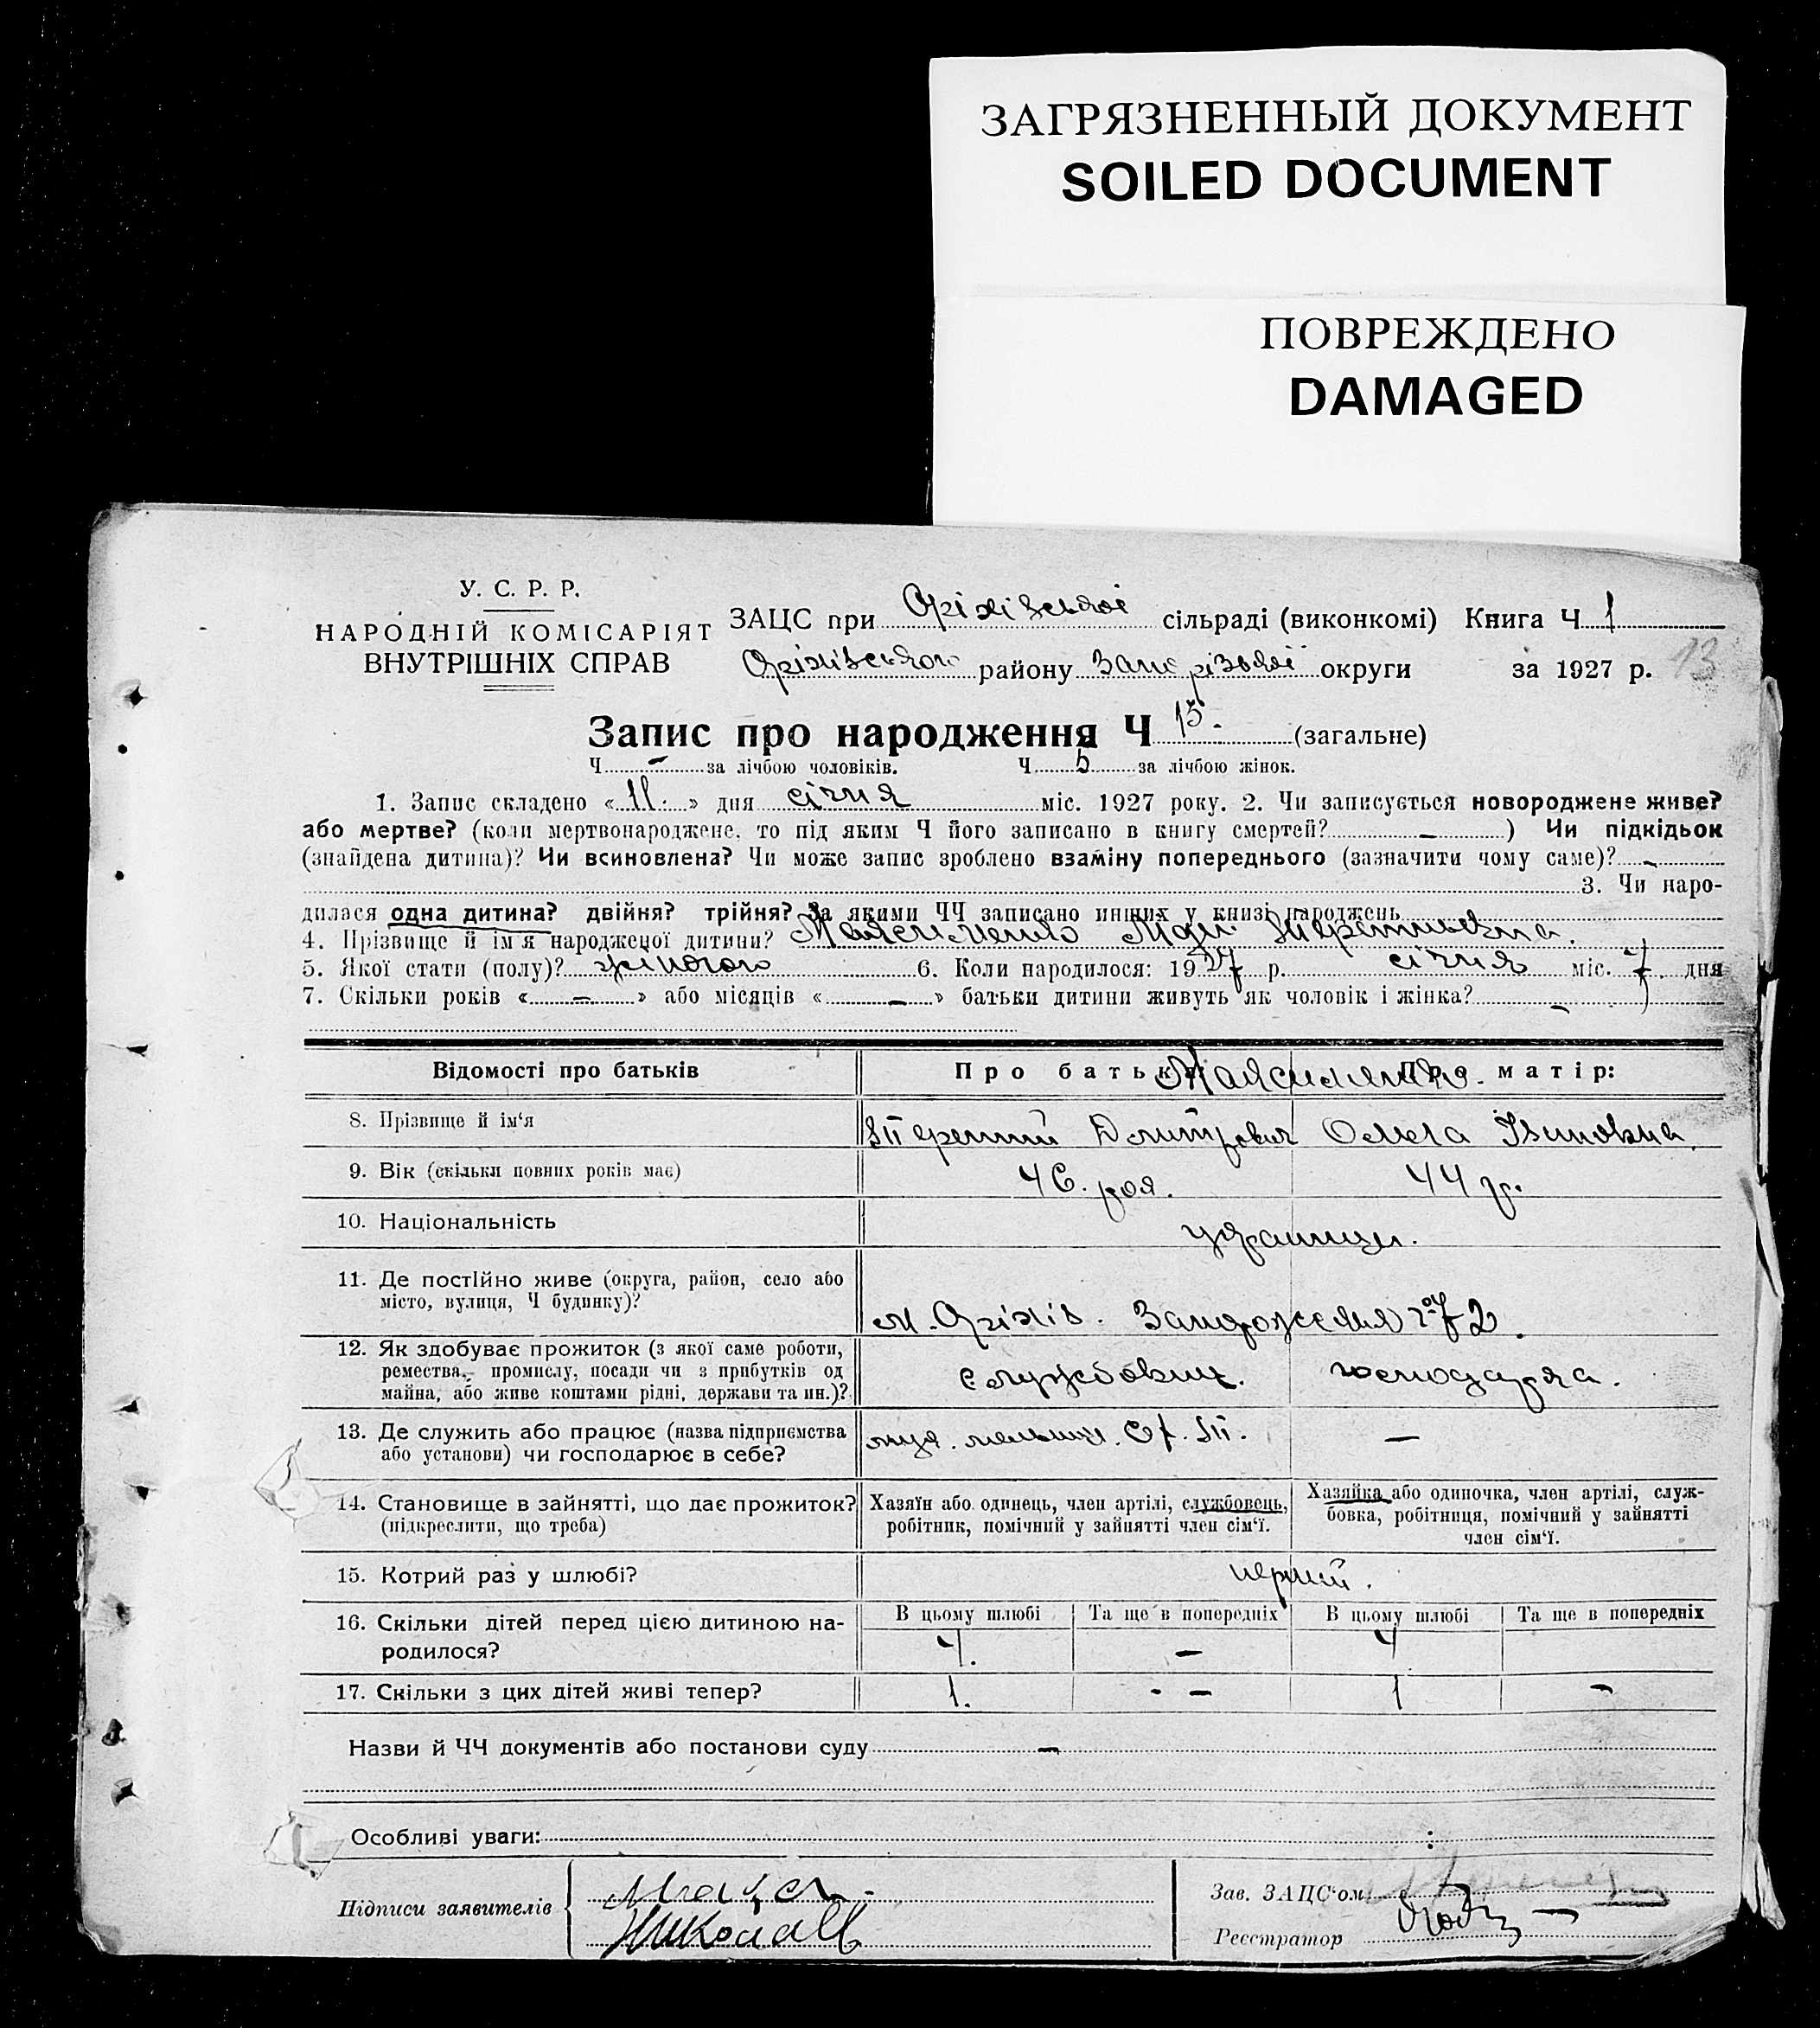 ЗАГРЯЗНЕННЫЙ ДОКУМЕНТ
SOILED DOCUMENT
ПОВРЕЖДЕНО
DAMAGED
У. С. Р. Р.
НАРОДНІЙ КОМІСАРІЯТ
ВНУТРІШНІХ СПРАВ
ЗАЦС при Оріхівській сільраді (виконкомі) Книга Ч 1
Оріхівського району Запорізької округи за 1927 р. 13
Запис про народження Ч 15. (загальне)
Ч - за лічбою чоловіків. Ч 5 за лічбою жінок.
1. Запис складено « 11. » дня січня міс. 1927 року. 2. Чи записується новороджене живе?
або мертве? (коли мертвонароджене, то під яким Ч його записано в книгу смертей? - ) Чи підкідьок
(знайдена дитина)? Чи всиновлена? Чи може запис зроблено взаміну попереднього (зазначити чому саме)? -
3. Чи наро-
дилася одна дитина? двійня? трійня? За якими ЧЧ записано инших у книзі народжень
4. Прізвище й ім'я народженої дитини? Максименко
5. Якої стати (полу)? жіночого 6. Коли народилося: 1927 р. січня міс. 7. дня
7. Скільки років « - » або місяців « - » батьки дитини живуть як чоловік і жінка? -
Відомості про батьків Про батька Про матір:
Максименко.
8. Прізвище й ім'я Терентий Дмитрович Ольга Івановна
9. Вік (скільки повних років має) 46. рок. 44 р.
10. Національність українці.
11. Де постійно живе (округа, район, село або
місто, вулиця, Ч будинку)? м. Оріхів. 72.
12. Як здобуває прожиток (з якої саме роботи,
ремества, промислу, посади чи з прибутків од
майна, або живе коштами рідні, держави та ин.)? службовець. господарка.
13. Де служить або працює (назва підприємства
або установи) чи господарює в себе? -
14. Становище в зайнятті, що дає прожиток?
(підкреслити, що треба)
Хазяїн або одинець, член артілі, службовець,
робітник, помічний у зайнятті член сім'ї.
Хазяйка або одиночка, член артілі, служ-
бовка, робітниця, помічний у зайнятті
член сім'ї.
15. Котрий раз у шлюбі? перший.
16. Скільки дітей перед цією дитиною на-
родилося?
В цьому шлюбі Та ще в попередніх В цьому шлюбі Та ще в попередніх
4. - 4
17. Скільки з цих дітей живі тепер? 1. - - 1 -
Назви й ЧЧ документів або постанови суду -
Особливі уваги:
Підписи заявителів
Зав. ЗАЦС'ом
Реєстратор